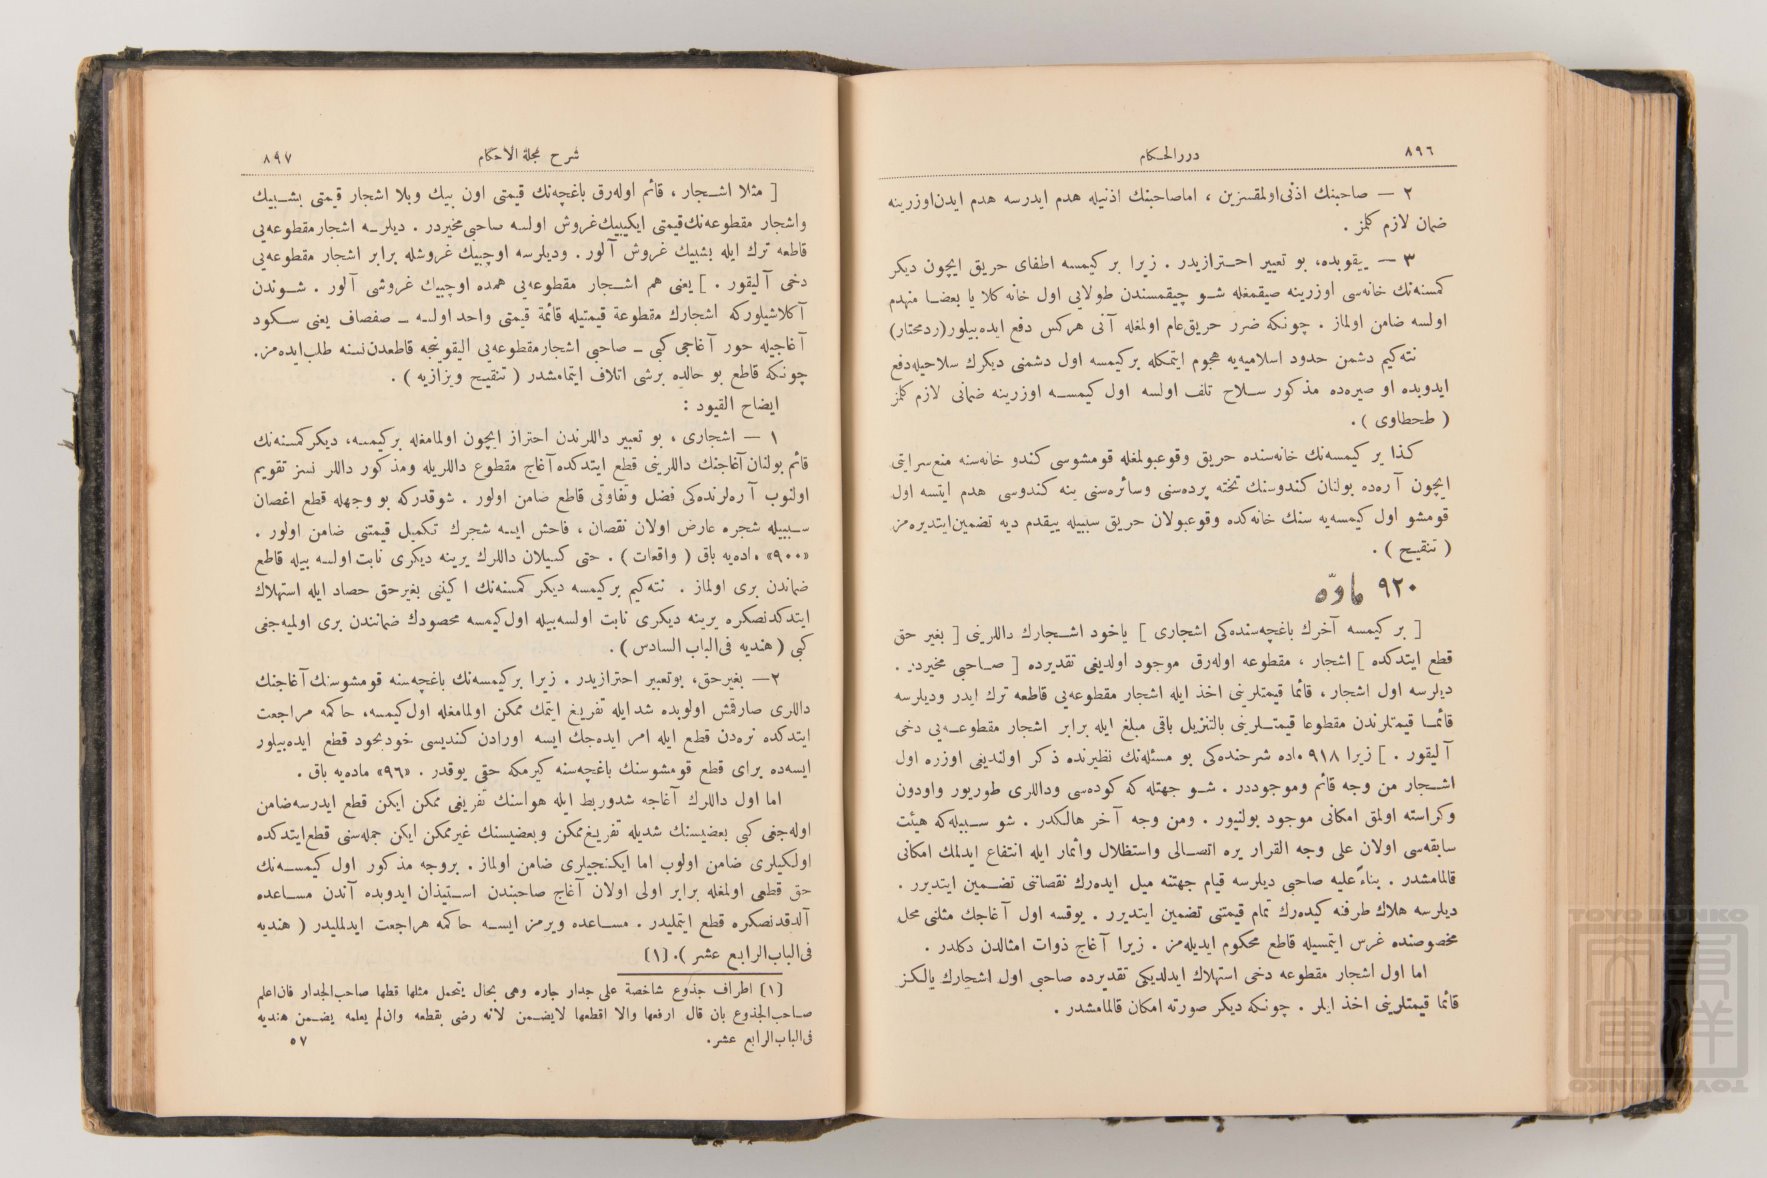 ٨٩٦
دررالحكام
٢ — صاحبنك اذنى اولمقسزين ، اماصاحبنك اذنيله هدم ايدرسه هدم ايدن اوزرينه
ضمان لازم كلمز .
٣ — ييقوبده، بو تعبير احترازيدر . زيرا بر كيمسه اطفاى حريق ايچون ديكر
كمسنه‌نك خانه‌سى اوزرينه صيقمغله شو چيقمسندن طولايى اول خانه كلا يا بعضا منهدم
اولسه ضامن اولماز . چونكه ضرر حريق عام اولمغله آنى هركس دفع ايده‌بيلور(ردمحتار)
نته‌كيم دشمن حدود اسلاميه‌يه هجوم ايتمكله بركيمسه اول دشمنى ديكرك سلاحيله دفع
ايدوبده او صيره‌ده مذكور سلاح تلف اولسه اول كيمسه اوزرينه ضمانى لازم كلمز
( طحطاوى ) .
كذا بر كيمسه‌نك خانه‌سنده حريق وقوعبولمغله قومشوسى كندو خانه‌سنه منع سرايتى
ايچون آره‌ده بولنان كندوسنك تخته پرده‌سنى وسائره‌سنى ينه كندوسى هدم ايتسه اول
قومشو اول كيمسه‌يه سنك خانه‌كده وقوعبولان حريق سببيله ييقدم ديه تضمين ايتديره‌مز
( تنقيح ) .
٩٢٠ مادّه
[ بر كيمسه آخرك باغچه‌سنده‌كى اشجارى ] ياخود اشجارك داللرينى [ بغير حق
قطع ايتدكده ] اشجار ، مقطوعه اوله‌رق موجود اولديغى تقديرده [ صاحبى مخيردر .
ديلرسه اول اشجار ، قائما قيمتلرينى اخذ ايله اشجار مقطوعه‌يى قاطعه ترك ايدر وديلرسه
قائما قيمتلرندن مقطوعا قيمتلرينى بالتنزيل باقى مبلغ ايله برابر اشجار مقطوعه‌يى دخى
آليقور . ] زيرا ٩١٨ ماده شرحنده‌كى بو مسئله‌نك نظيرنده ذكر اولنديغى اوزره اول
اشجار من وجه قائم وموجوددر . شو جهتله كه كوده‌سى وداللرى طوريور واودون
وكراسته اولمق امكانى موجود بولنيور . ومن وجه آخر هالكدر . شو سببله كه هيئت
سابقه‌سى اولان على وجه القرار يره اتصالى واستظلال واثمار ايله انتفاع ايدلمك امكانى
قالمامشدر . بناءً عليه صاحبى ديلرسه قيام جهتنه ميل ايده‌رك نقصانى تضمين ايتديرر .
ديلرسه هلاك طرفنه كيده‌رك تمام قيمتنى تضمين ايتديرر . يوقسه اول آغاجك مثلنى محل
مخصوصنده غرس ايتمسيله قاطع محكوم ايديله‌مز . زيرا آغاج ذوات امثالدن دكلدر .
اما اول اشجار مقطوعه دخى استهلاك ايدلديكى تقديرده صاحبى اول اشجارك يالكز
قائما قيمتلرينى اخذ ايلر . چونكه ديكر صورته امكان قالمامشدر .
شرح مجلة الاحكام
٨٩٧
[ مثلا اشجار ، قائم اوله‌رق باغچه‌نك قيمتى اون بيك وبلا اشجار قيمتى بش‌بيك
واشجار مقطوعه‌نك قيمتى ايكيبيك غروش اولسه صاحبى مخيردر . ديلرسه اشجار مقطوعه‌يى
قاطعه ترك ايله بشبيك غروش آلور . وديلرسه اوچبيك غروشله برابر اشجار مقطوعه‌يى
دخى آليقور . ] يعنى هم اشجار مقطوعه‌يى همده اوچبيك غروشى آلور . شوندن
آكلاشيلوركه اشجارك مقطوعة قيمتيله قائمة قيمتى واحد اولسه — صفصاف يعنى سكود
آغاجيله حور آغاجى كبى — صاحبى اشجار مقطوعه‌يى اليقوينجه قاطعدن نسنه طلب ايده‌مز.
چونكه قاطع بو حالده برشى اتلاف ايتمامشدر ( تنقيح وبزازيه ) .
ايضاح القيود :
١ — اشجارى ، بو تعبير داللرندن احتراز ايچون اولمامغله بركيمسه، ديكر كمسنه‌نك
قائم بولنان آغاجنك داللرينى قطع ايتدكده آغاج مقطوع داللريله ومذكور داللر نسز تقويم
اولنوب آره‌لرنده‌كى فضل وتفاوتى قاطع ضامن اولور . شوقدركه بو وجهله قطع اغصان
سببيله شجره عارض اولان نقصان ، فاحش ايسه شجرك تكميل قيمتنى ضامن اولور .
«٩٠٠» ماده‌يه باق ( واقعات ) . حتى كسيلان داللرك يرينه ديكرى نابت اولسه بيله قاطع
ضماندن برى اولماز . نته‌كيم بركيمسه ديكر كمسنه‌نك اكيننى بغيرحق حصاد ايله استهلاك
ايتدكدنصكره يرينه ديكرى نابت اولسه‌بيله اول كيمسه محصودك ضمانندن برى اولميه‌جغى
كبى ( هنديه فى‌الباب السادس ) .
٢ — بغيرحق، بوتعبير احترازيدر . زيرا بركيمسه‌نك باغچه‌سنه قومشوسنك آغاجنك
داللرى صارقمش اولوبده شد ايله تفريغ ايتمك ممكن اولمامغله اول كيمسه، حاكمه مراجعت
ايتدكده نره‌دن قطع ايله امر ايده‌جك ايسه اورادن كنديسى خودبخود قطع ايده‌بيلور
ايسه‌ده براى قطع قومشوسنك باغچه‌سنه كيرمكه حقى يوقدر . «٩٦» ماده‌يه باق .
اما اول داللرك آغاجه شدوربط ايله هواسنك تفريغى ممكن ايكن قطع ايدرسه ضامن
اوله‌جغى كبى بعضيسنك شديله تفريغ ممكن وبعضيسنك غيرممكن ايكن جمله‌سنى قطع ايتدكده
اولكيلرى ضامن اولوب اما ايكنجيلرى ضامن اولماز . بروجه مذكور اول كيمسه‌نك
حق قطعى اولمغله برابر اولى اولان آغاج صاحبندن استيذان ايدوبده آندن مساعده
آلدقدنصكره قطع ايتمليدر . مساعده ويرمز ايسه حاكمه مراجعت ايدلمليدر ( هنديه
فى‌الباب الرابع عشر ). (١)
(١) اطراف جذوع شاخصة على جدار جاره وهى بحال يتحمل مثلها قطها صاحب الجدار فان اعلم
صاحب الجذوع بان قال ارفعها والا اقطعها لايضمن لانه رضى بقطعه وان لم يعلمه يضمن هنديه
فى‌الباب الرابع عشر.
٥٧
TOYO BUNKO